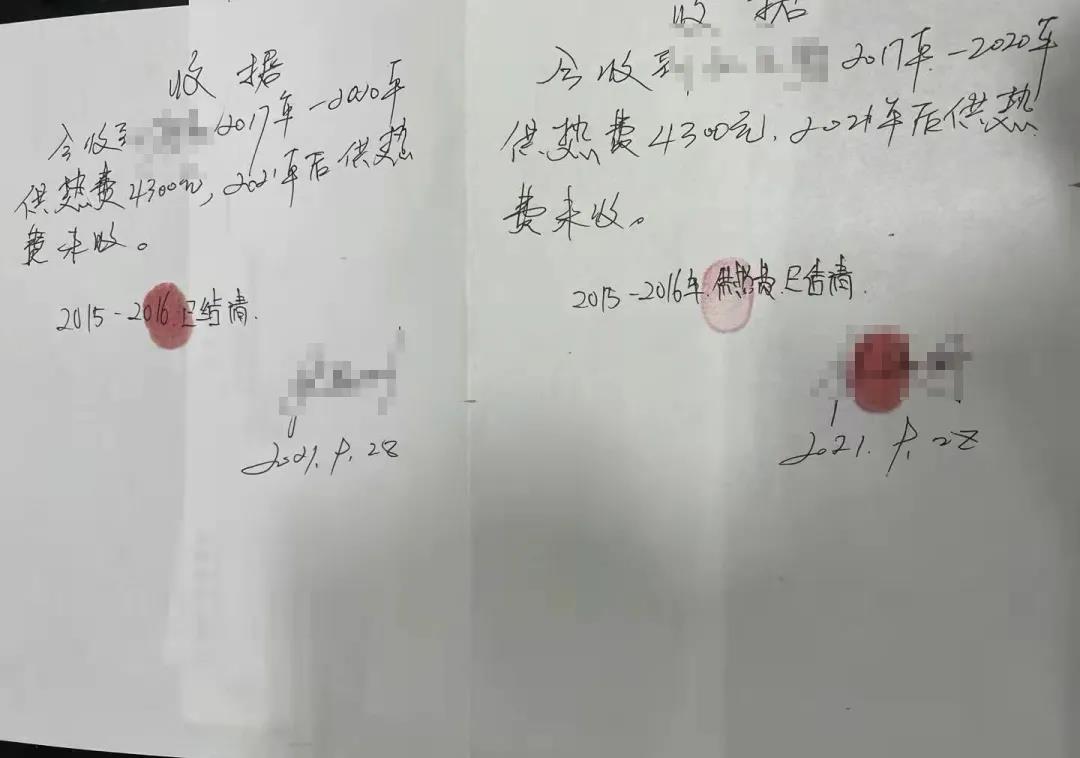 收 据
今收到 2017年-2020年
供热费4300元,2021年后供热
费未收。
2015-2016.已结清.
2021.9.28
收 据
今收到 2017年-2020年
供热费4300元.2021年后供热
费未收。
2015-2016年.供热费.已结清.
2021.9.28